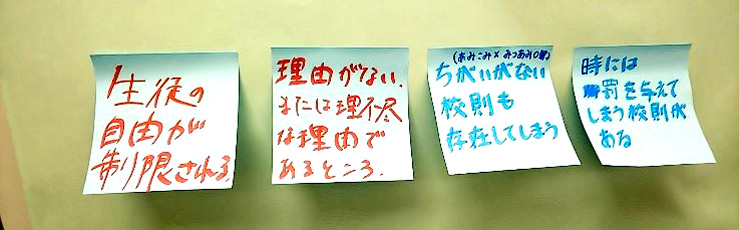 生徒の
自由が
制限される。
理由がない、
または理不尽
な理由で
あるところ。
(あみこみ×みつあみ○等)
ちがいがない
校則も
存在してしまう
時には
罰を与えて
しまう校則が
ある